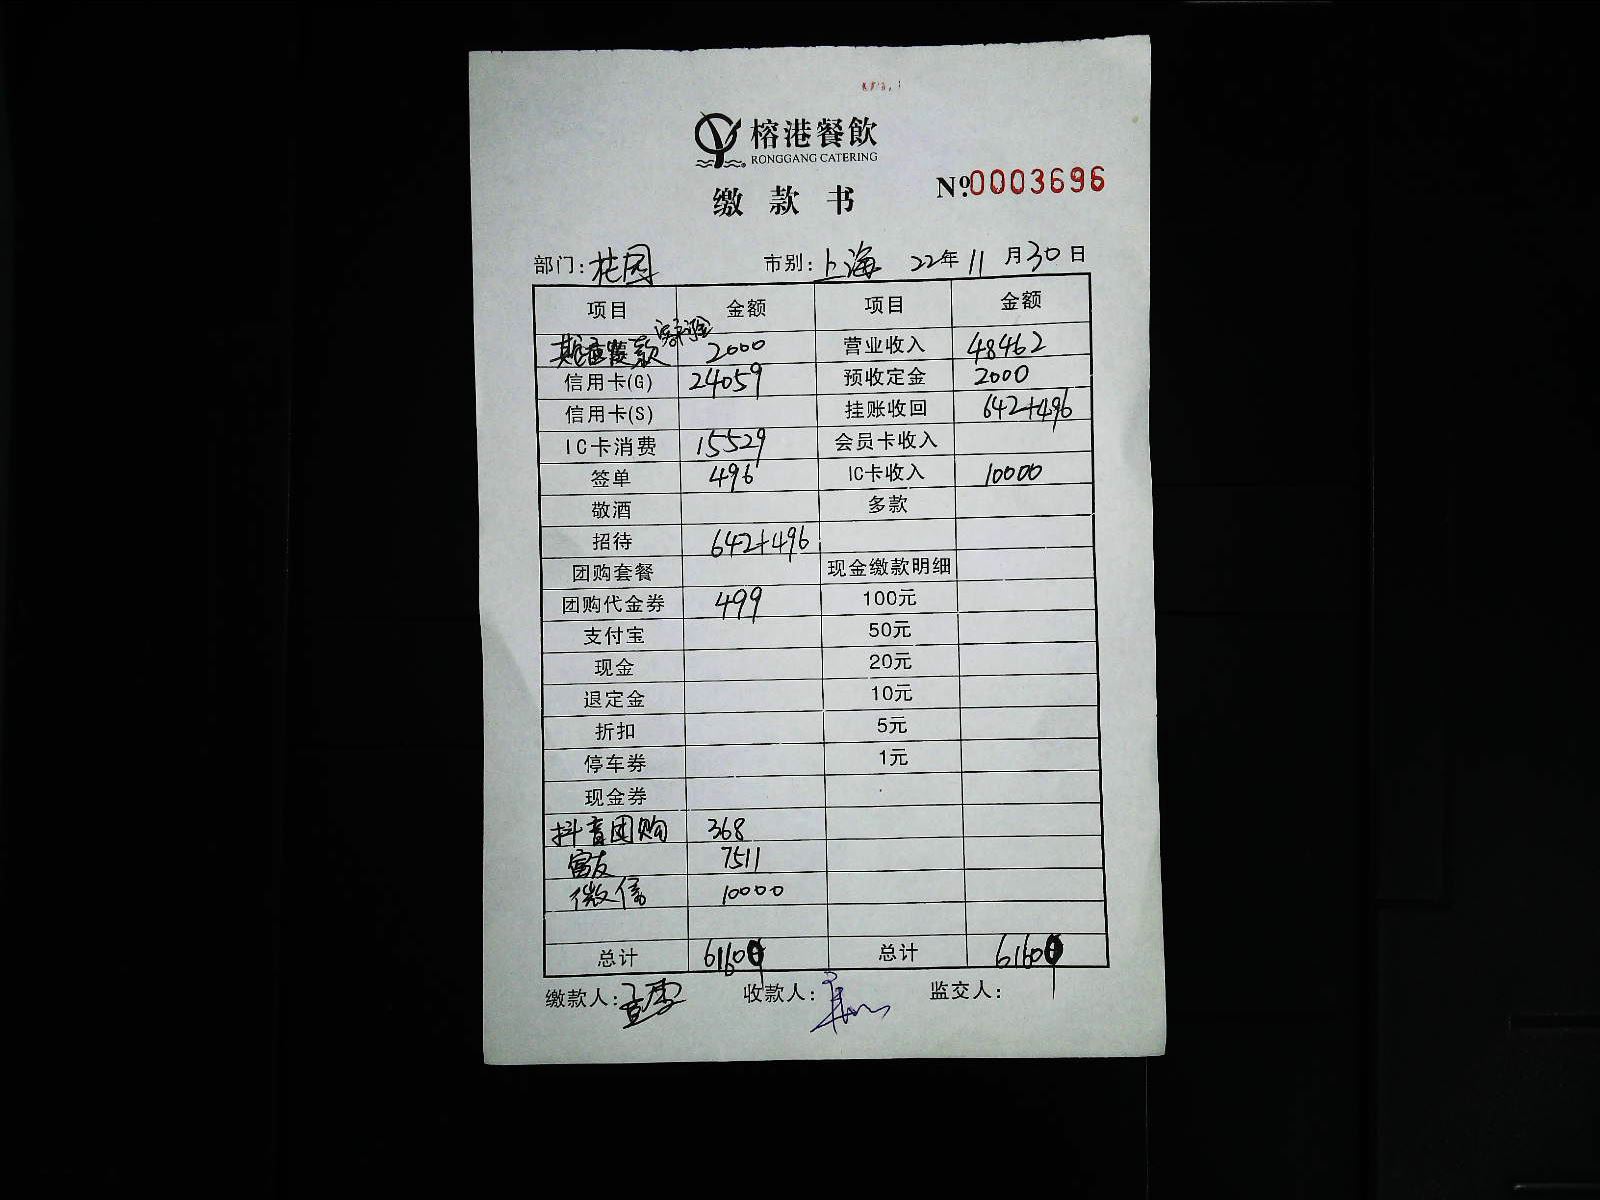 榕港餐飲
RONGGANG CATERING
缴款书 Nº.0003696
部门:花园 市别:上海 22年11月30日
项目 金额 项目 金额
2000 营业收入 48462
信用卡(G) 24059 预收定金 2000
信用卡(S) 挂账收回 642+496
IC卡消费 15529 会员卡收入
签单 496 IC卡收入 10000
敬酒 多款
招待 642+496
团购套餐 现金缴款明细
团购代金券 499 100元
支付宝 50元
现金 20元
退定金 10元
折扣 5元
停车券 1元
现金券
抖音团购 368
富友 7511
微信 10000
总计 6160 总计 6160
缴款人: 收款人: 监交人: